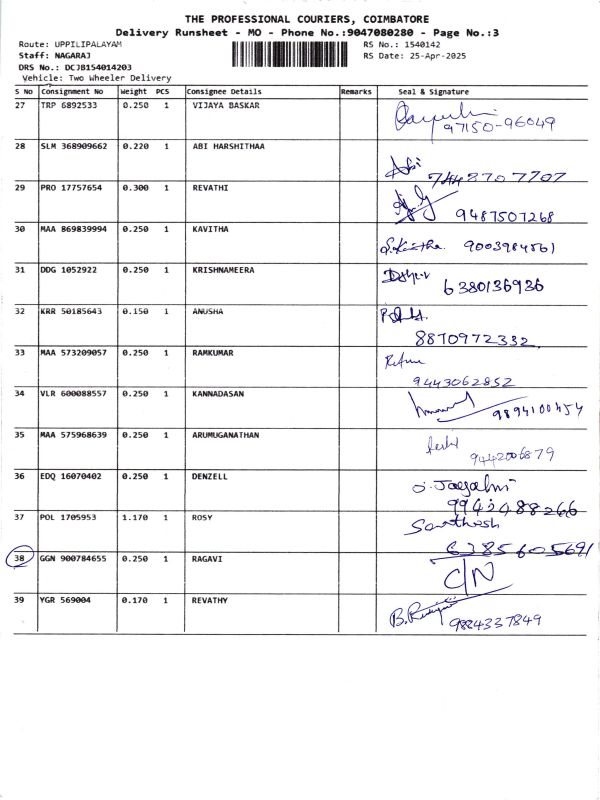 THE PROFESSIONAL COURIERS, COIMBATORE
Delivery Runsheet - MO - Phone No.:9047080280 - Page No.:3
Route: UPPILIPALAYAM RS No.: 1540142
Staff: NAGARAJ RS Date: 25-Apr-2025
DRS No.: DCJB154014203
Vehicle: Two Wheeler Delivery
S No Consignment No Weight PCS Consignee Details Remarks Seal & Signature
27 TRP 6892533 0.250 1 VIJAYA BASKAR
97150-96049
28 SLM 368909662 0.220 1 ABI HARSHITHAA
Abi 7448707707
29 PRO 17757654 0.300 1 REVATHI
9487507268
30 MAA 869839994 0.250 1 KAVITHA
9003984561
31 DDG 1052922 0.250 1 KRISHNAMEERA
6380136936
32 KRR 50185643 0.150 1 ANUSHA
8870972332
33 MAA 573209057 0.250 1 RAMKUMAR
9443062852
34 VLR 600088557 0.250 1 KANNADASAN
9894100454
35 MAA 575968639 0.250 1 ARUMUGANATHAN
9442006879
36 EDQ 16070402 0.250 1 DENZELL
9942488266
37 POL 1705953 1.170 1 ROSY
Santhosh
6285605691
38 GGN 900784655 0.250 1 RAGAVI
C/N
39 YGR 569004 0.170 1 REVATHY
9884337849